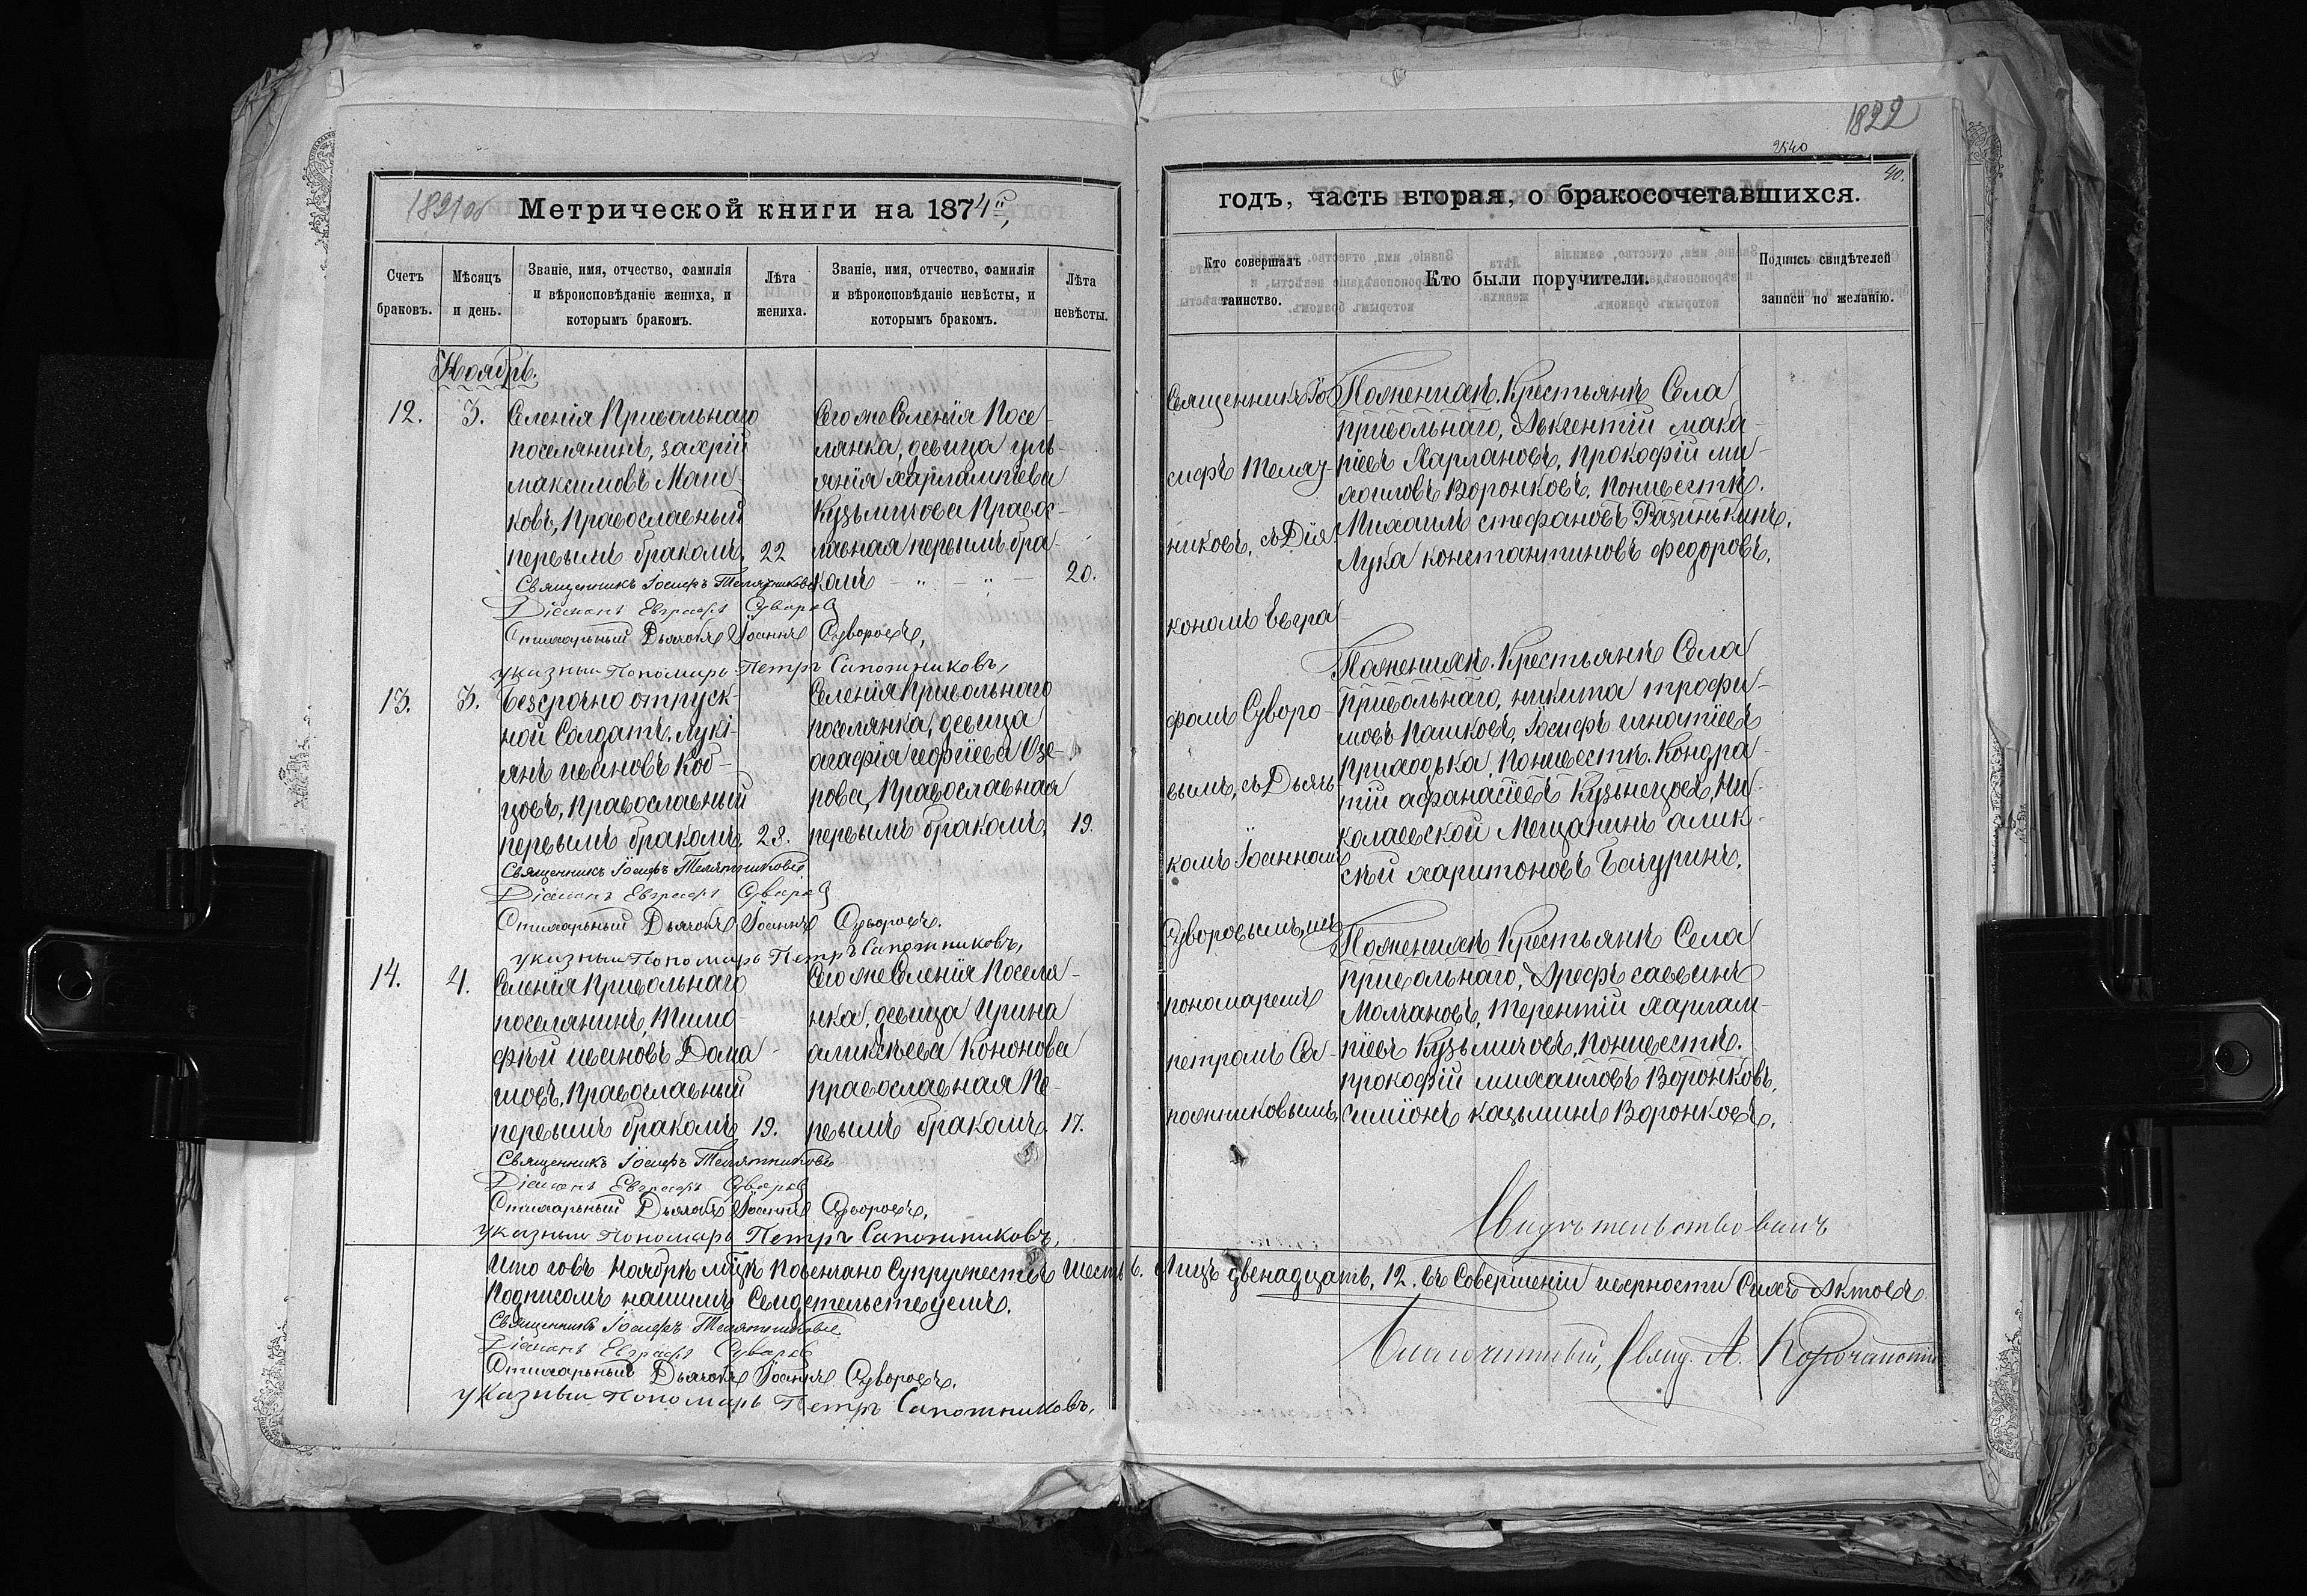 1821об
Метрической книги на 1874й,
Счетъ браковъ.
Мѣсяцъ и день.
Званіе, имя, отчество, фамилія и вѣроисповѣданіе жениха, и которымъ бракомъ.
Лѣта жениха.
Званіе, имя, отчество, фамилія и вѣроисповѣданіе невѣсты, и которымъ бракомъ.
Лѣта невѣсты.
Ноябрь.
12.
3.
Селенія Привольнаго
поселянинъ, захрій
максимовъ Маш-
ковъ, Православный
первымъ бракомъ,
22
Сегоже Селенія Посе-
лянка, девица уль-
янія харлампіева
Кузьмичова Правос-
лавная первымъ бра-
комъ
20.
Священникъ Іосифъ Телятниковъ
Діаконъ Евграфъ Суворов
Стихарный Дьячокъ Іоаннъ Суворовъ,
указный Пономарь Петръ Сапожниковъ,
13.
3.
Безсрочно отпуск-
ной Солдатъ, Луkі-
янъ ивановъ Коб-
цовъ, православный
первымъ бракомъ,
23.
Селенія Привольнаго
поселянка, девица
агафія георгіева Озе-
рова, Православная
первымъ бракомъ,
19.
Священникъ Іосифъ Телятниковъ
Діаконъ Евграфъ Суворов
Стихарный Дьячокъ Іоаннъ Суворовъ.
указный Пономарь Петръ Сапожниковъ,
14.
4.
Селенія Привольнаго
поселянинъ, Тимо-
фѣй ивановъ Дома-
шовъ, Православный
первымъ бракомъ,
19.
Сегоже Селенія Поселя-
нка, девица Ирина
аликсѣева Кононова
православная Пе-
рвымъ бракомъ.
17.
Священникъ Іосифъ Телятниковъ
Діаконъ Евграфъ Суворов
Стихарный Дьячокъ Іоаннъ Суворовъ,
указный Пономарь Петръ Сапожниковъ,
Ито говъ Ноябрѣ мцѣ Повенчано Супружествъ Шесть 6. Лицъ двенадцать, 12. въ Совершеніи иверности Сихъ Актовъ
Подписомъ нашимъ Свидетельствуемъ.
Священникъ Іосифъ Телятниковъ
Діаконъ Евграфъ Суворов
Стихарный Дьячокъ Іоаннъ Суворовъ.
указный Пономарь Петръ Сапожниковъ,
1822
2540
40.
годъ, часть вторая, о бракосочетавшихся.
Кто совершалъ таинство.
Кто были поручители.
Подпись свидѣтелей записи по желанію.
Священникъ Іо-
сифъ Теляч-
никовъ, съ Дія-
кономъ Евгра-
фомъ Суворо-
вымъ, съ Дьяч-
комъ Іоанномъ
Суворовымъ, ипо-
пономаремъ
петромъ Са-
пожниковымъ,
Поженихѣ. Крестьянѣ Села
Привольнаго, Авксентій мака-
ріевъ Харлановъ, Прокофій ми-
хаиловъ Воронковъ. Поневестѣ.
Михаилъ стефановъ Разинькинъ,
Лука константиновъ федоровъ.
Поженихѣ. Крестьянѣ Села
Привольнаго, никита трофи-
мовъ Пашковъ, Іосифъ игнатіевъ
Приходька, Поневестѣ. Кондра-
тій афанасіевъ Кузьнецовъ, Ни-
колаевской Мещанинъ алик-
сѣй харитоновъ Бачуринъ,
Поженихѣ Крестьянѣ Села
Привольнаго, Арефъ саввинъ
Молчановъ, Терентій харлам-
піевъ Кузьмичовъ, Поневестѣ.
прокофій михаиловъ Воронковъ,
симіонъ казьминъ Воронковъ,
Свидѣтельствовалъ
Благочинный, Свящ. А.